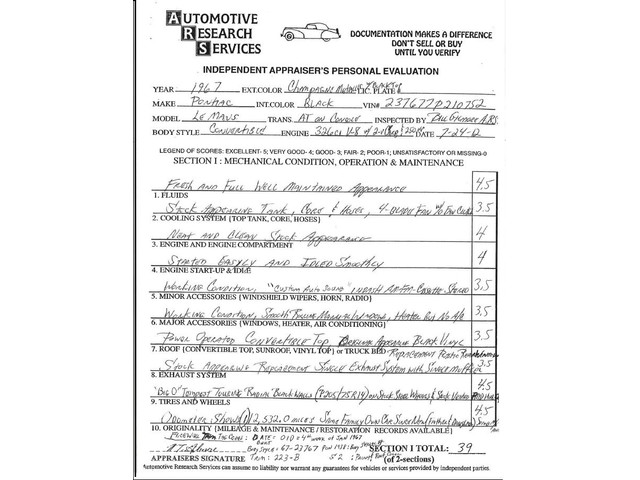 AUTOMOTIVE
RESEARCH
SERVICES
DOCUMENTATION MAKES A DIFFERENCE
DON'T SELL OR BUY
UNTIL YOU VERIFY
INDEPENDENT APPRAISER'S PERSONAL EVALUATION
YEAR 1967 EXT.COLOR Champagne LIC. PLATE #
MAKE Pontiac INT.COLOR Black VIN# 237677P210752
MODEL Le Mans TRANS. AT on Console INSPECTED BY Gilmore ARS
BODY STYLE Convertible ENGINE 326ci V-8 DATE 7-24-
LEGEND OF SCORES: EXCELLENT- 5; VERY GOOD- 4; GOOD- 3; FAIR- 2; POOR-1; UNSATISFACTORY OR MISSING-0
SECTION I : MECHANICAL CONDITION, OPERATION & MAINTENANCE
Fresh and Full Well Maintained Appearance 4.5
1. FLUIDS
Stock Appearing Tank, Core & Hoses, 4-Blade Fan w/ Fan Clutch 3.5
2. COOLING SYSTEM {TOP TANK, CORE, HOSES}
Neat and Clean Stock Appearance 4
3. ENGINE AND ENGINE COMPARTMENT
Started Easily and Idled Smoothly 4
4. ENGINE START-UP & IDLE
Working Condition, "Custom Auto Sound" Indash AM-FM-Cassette Stereo 3.5
5. MINOR ACCESSORIES {WINDSHIELD WIPERS, HORN, RADIO}
Working Condition, Smooth Manual Windows, Heater But No A/C 3.5
6. MAJOR ACCESSORIES {WINDOWS, HEATER, AIR CONDITIONING}
Power Operated Convertible Top, Appearing Black Vinyl 3.5
7. ROOF {CONVERTIBLE TOP, SUNROOF, VINYL TOP} or TRUCK BED Replacement Plastic Rear
Stock Appearing Replacement Single Exhaust System with Single Muffler 3.5
8. EXHAUST SYSTEM
"Big O" Touring Radial Blackwalls (P205/75R14) on Stock Steel Wheels & Stock 4.5
9. TIRES AND WHEELS
Odometer Shows 112,532.0 miles Same Family Own Car Since New 4.5
10. ORIGINALITY {MILEAGE & MAINTENANCE / RESTORATION RECORDS AVAILABLE}
DATE = 01D = 4th week of Jan 1967
Body Style = 67-23767
SECTION I TOTAL: 39
APPRAISERS SIGNATURE Trim: 223-B (of 2-sections)
Automotive Research Services can assume no liability nor warrant any guarantees for vehicles or services provided by independent parties.